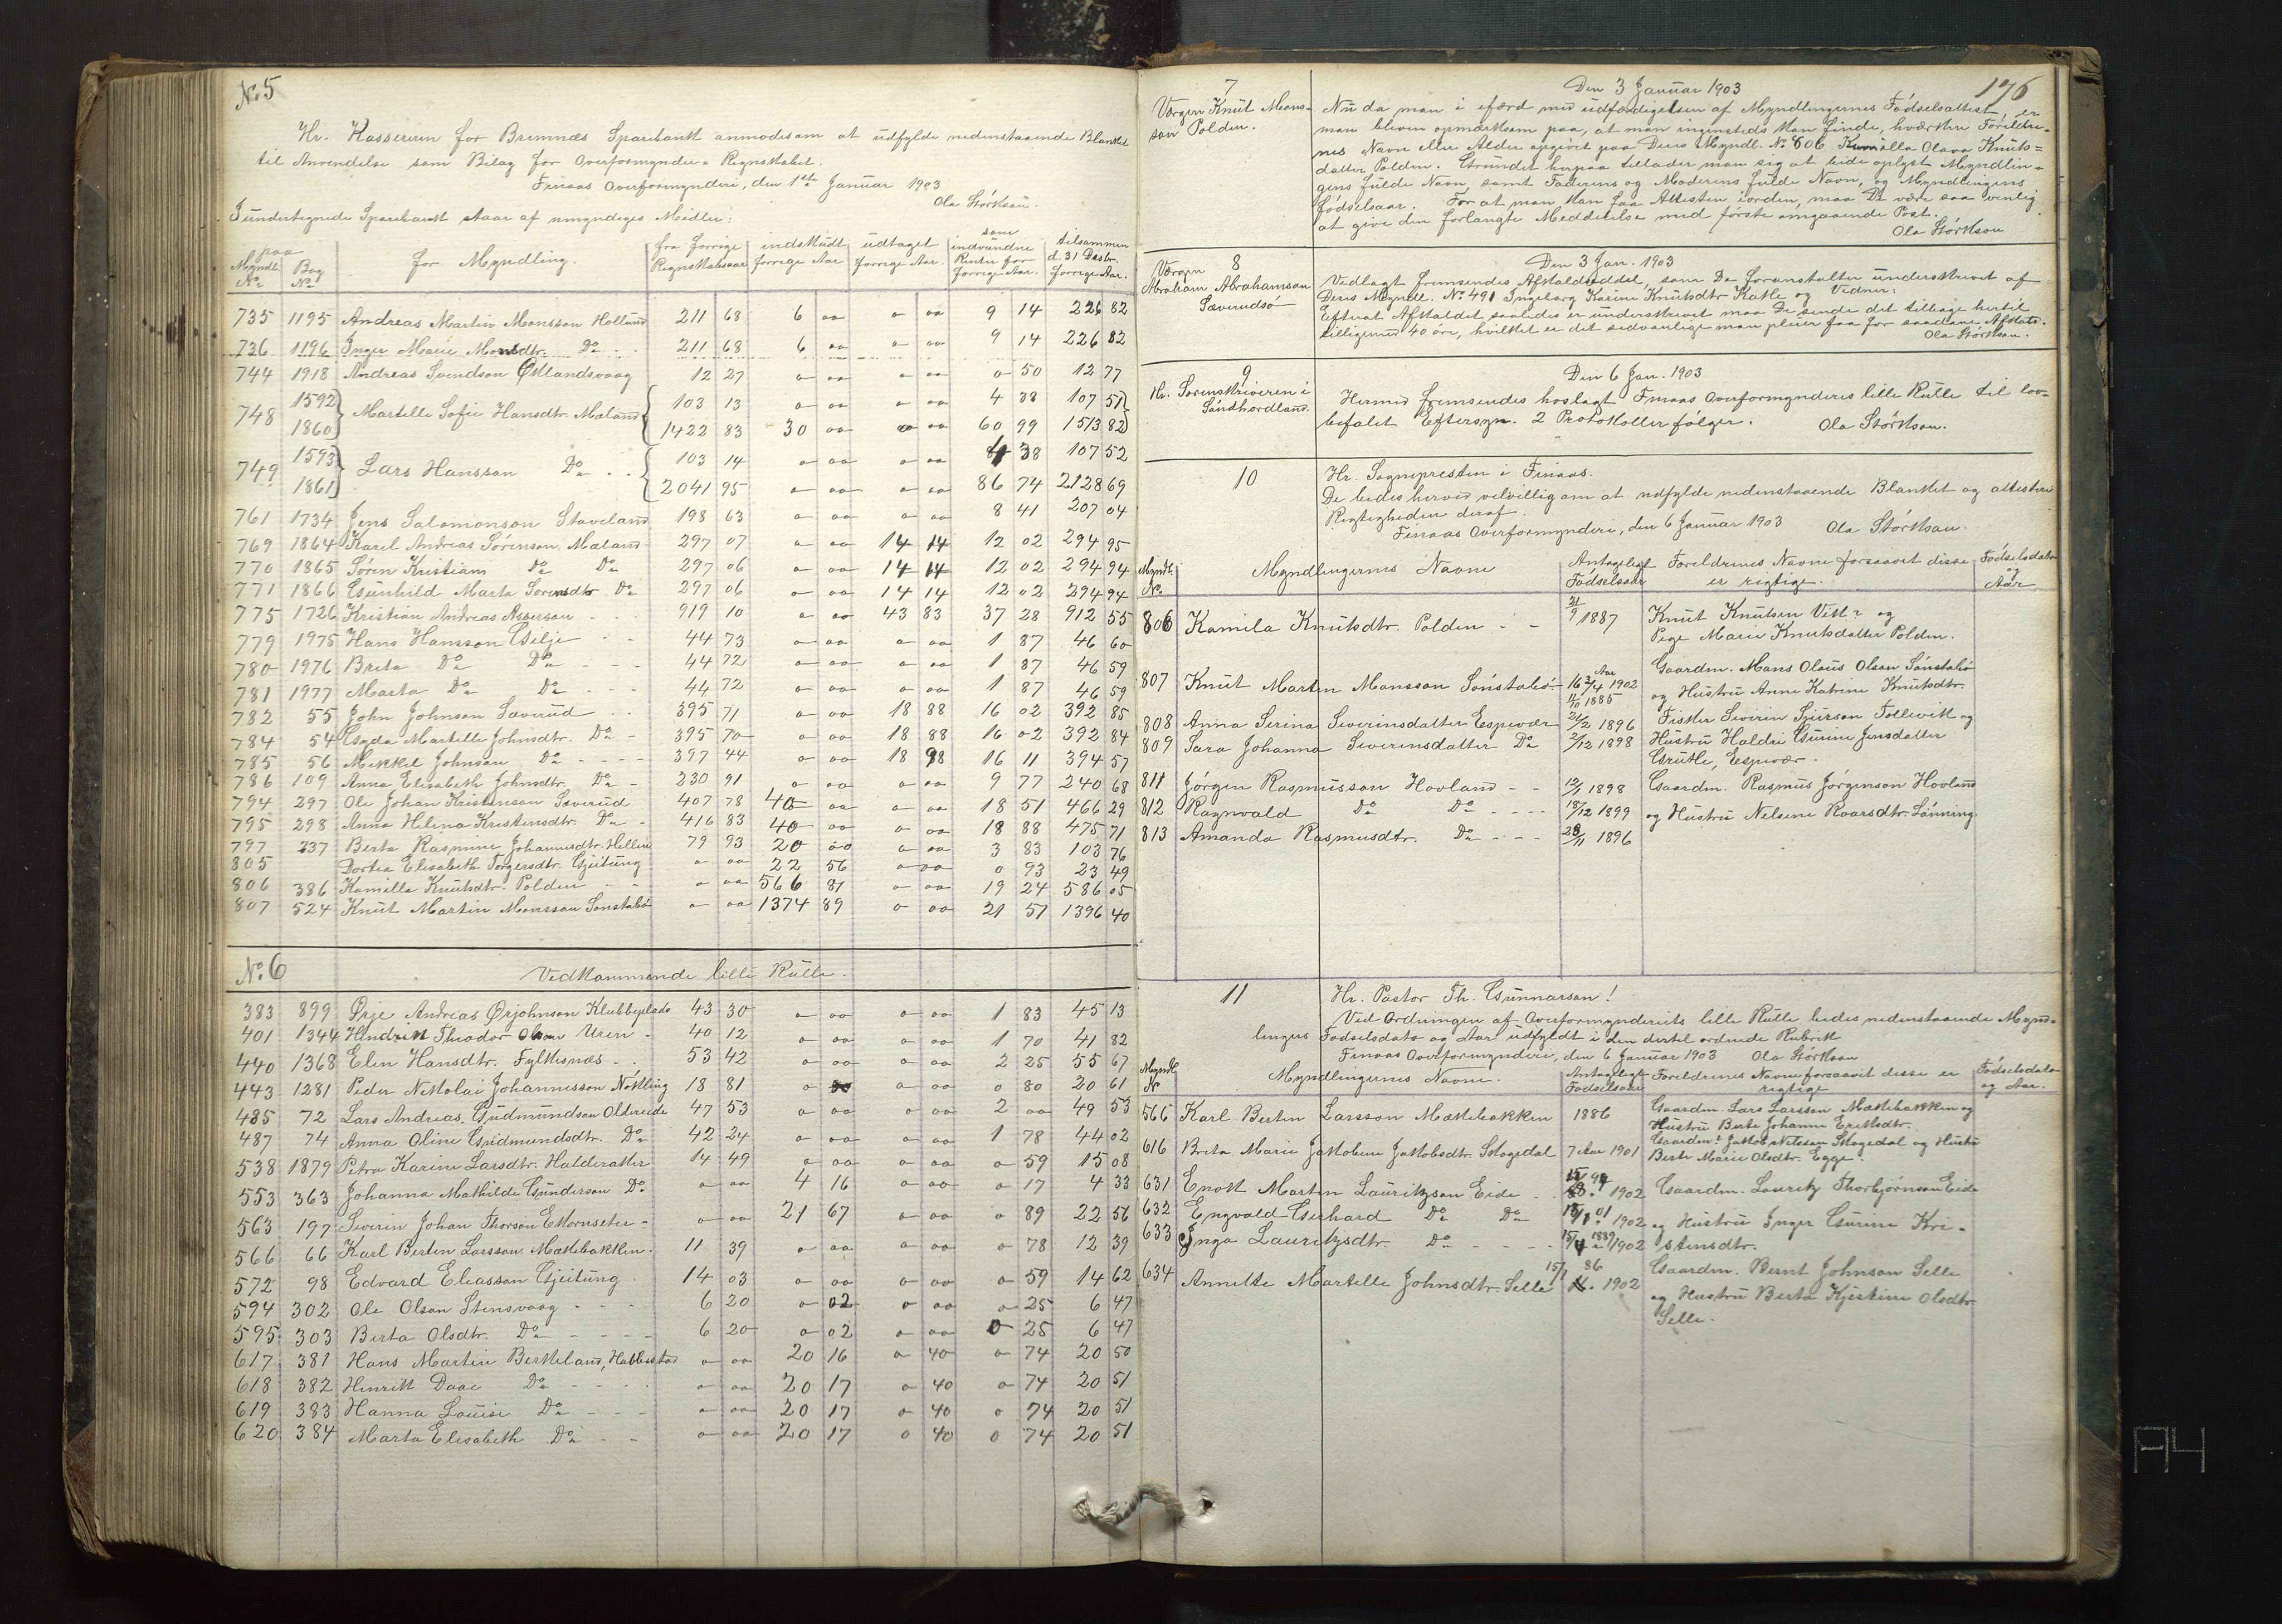 No 5
Hr. Kassereren for Bremnæs Sparebank anmodes om at udfylde nedenstaaende Blanket
til Anvendelse som Bilag for Overformynder-Regnskabet.
Finaas Overformynderi, den 1ste Januar 1903
Ola Størkson.
I undertegnede Sparebank staar af umyndiges Midler:
paa Myndl. No | Bog No | for Myndling. | fra forrige Regnskabsaar | indskudt forrige Aar | udtaget forrige Aar. | som indvundne Renter for forrige Aar. | tilsammen d. 31 Decbr. forrige Aar.
735 1195 Andreas Martin Monsson Holland 211 68 6 00 0 00 9 14 226 82
736 1196 Inger Marie Monsdtr. Do 211 68 6 00 0 00 9 14 226 82
744 1918 Andreas Svendson Øklandsvaag 12 27 0 00 0 00 0 50 12 77
748 1592 Martelle Sofie Hansdtr. Mæland 103 13 0 00 0 00 4 38 107 51
1860 1422 83 30 00 0 00 60 99 1513 82
749 1593 Lars Hansson Do 103 14 0 00 0 00 4 38 107 52
1861 2041 95 0 00 0 00 86 74 2128 69
761 1734 Jens Salomonson Staveland 198 63 0 00 0 00 8 41 207 04
769 1864 Karel Andreas Sørenson Mæland 297 07 0 00 14 14 12 02 294 95
770 1865 Søren Kristian Do Do 297 06 0 00 14 14 12 02 294 94
771 1866 Gunhild Marta Sørensdtr Do 297 06 0 00 14 14 12 02 294 94
775 1726 Kristian Andreas Asserson 919 10 0 00 43 83 37 28 912 55
779 1975 Hans Hansson Gelje 44 73 0 00 0 00 1 87 46 60
780 1976 Brita Do Do 44 72 0 00 0 00 1 87 46 59
781 1977 Marta Do Do 44 72 0 00 0 00 1 87 46 59
782 55 John Johnson Sæverud 395 71 0 00 18 88 16 02 392 85
784 54 Gyda Martelle Johnsdtr. Do 395 70 0 00 18 88 16 02 392 84
785 56 Mikkel Johnson Do 397 44 0 00 18 98 16 11 394 57
786 109 Anna Elisabeth Johnsdtr. Do 230 91 0 00 0 00 9 77 240 68
794 297 Ole Johan Kristenson Sæverud 407 78 40 00 0 00 18 51 466 29
795 298 Anna Helena Kristensdtr. Do 416 83 40 00 0 00 18 88 475 71
797 337 Berta Rasmine Johannesdtr. Hellen 79 93 20 00 0 00 3 83 103 76
805 Dortea Elisabeth Torgersdtr. Gjeitung 0 00 22 56 0 00 0 93 23 49
806 386 Kamilla Knutsdtr. Polden 0 00 566 81 0 00 19 24 586 05
807 524 Knut Martin Monsson Sønstabø 0 00 1374 89 0 00 21 51 1396 40
No 6
Vedkommende lille Rulle.
383 899 Ørje Andreas Ørjohnson Klubbeplads 43 30 0 00 0 00 1 83 45 13
401 1344 Hendrik Theodor Olson Uren 40 12 0 00 0 00 1 70 41 82
440 1368 Elen Hansdtr. Fylkesnæs 53 42 0 00 0 00 2 25 55 67
443 1281 Peder Nikolai Johannesson Nøkling 18 81 0 00 0 00 0 80 20 61
485 72 Lars Andreas Gudmundson Oldereide 47 53 0 00 0 00 2 00 49 53
487 74 Anna Oline Gudmundsdtr. Do 42 24 0 00 0 00 1 78 44 02
538 1879 Petra Karine Larsdtr. Halderaker 14 49 0 00 0 00 0 59 15 08
553 363 Johanna Mathilde Gunderson Do 0 00 4 16 0 00 0 17 4 33
563 197 Severin Johan Thorson Ekornsæter 0 00 21 67 0 00 0 89 22 56
566 66 Karl Bertin Larsson Mækebakken 11 39 0 00 0 00 0 78 12 39
572 98 Edvard Eliasson Gjeitung 14 03 0 00 0 00 0 59 14 62
594 302 Ole Olson Stensvaag 6 20 0 02 0 00 0 25 6 47
595 303 Berta Olsdtr. Do 6 20 0 02 0 00 0 25 6 47
617 381 Hans Martin Berkeland, Hobbestad 0 00 20 16 0 40 0 74 20 50
618 382 Henrik Daae Do 0 00 20 17 0 40 0 74 20 51
619 383 Hanna Louise Do 0 00 20 17 0 40 0 74 20 51
620 384 Marta Elisabeth Do 0 00 20 17 0 40 0 74 20 51
176
7
Værgen Knut Mons-
son Polden.
Den 3 Januar 1903
Nu da man i efærd med udfærdigelsen af Myndlingernes Fødselsattest, er
man bleven opmærksom paa, at man ingensteds kan finde, hverken Foreldre-
nes Navn eller Alder opgivet paa Deres Myndl. No 806 Kamilla Olava Knuts=
datter Polden. Grundet herpaa tillader man sig at bede oplyst Myndlin-
gens fulde Navn, samt Faderens og Moderens fulde Navn, og Myndlingens
fødselsaar. For at man kan faa Attesten iorden, maa De være saa venlig
at give den forlangte Meddelelse med første omgaaende Post.
Ola Størkson
8
Værgen
Abraham Abrahamson
Sæverudsø
Den 3 Jan. 1903
Vedlagt fremsendes Afkaldseddel, som De foranstalter underskrevet af
Deres Myndl. No 491 Ingeborg Karine Knutsdtr Katle og Vidner.
Efterat Afkaldet saaledes er underskrevet maa De sende det tilbage hertil
tilligemed 40 øre, hvilket er det sedvanlige man pleier faa for saadane Afkald.
Ola Størkson.
9
Hr. Sorenskriveren i
Søndhordland.
Den 6 Jan. 1903
Hermed fremsendes hoslagt Finaas Overformynderis lille Rulle til lov-
befalet Eftersyn. 2 Protokoller følger.
Ola Størkson.
10
Hr. Sognepresten i Finaas.
De bedes herved velvillig om at udfylde nedenstaaende Blanket og attestere
Rigtigheden deraf.
Finaas Overformynderi, den 6 Januar 1903 Ola Størkson.
Myndl. No | Myndlingernes Navne | Antageligt Fødselsaar | Foreldrenes Navne forsaavit disse er rigtige. | Fødselsdato og Aar
806 Kamila Knutsdtr. Polden 21/9 1887 Knut Knutsen Vik? og
Pege Marie Knutsdatter Polden.
807 Knut Martin Monsson Sønstabø 16 Aar 2/4 1902 Gaardm. Mons Olaus Olson Sønstabø
11/10 1885 og Hustru Anne Katrine Knutsdtr.
808 Anna Serina Severinsdatter Espevær 21/2 1896 Fisker Severin Sjurson Follevik og
809 Sara Johanna Severinsdatter Do 2/12 1898 Hustru Haldri Gurine Jensdatter
Grutle, Espevær.
811 Jørgen Rasmusson Hovland 12/1 1898 Gaardm. Rasmus Jørgenson Hovland
812 Ragnvald Do Do 18/12 1899 og Hustru Nelsene Roarsdtr. Lønning.
813 Amanda Rasmusdtr. Do 28/11 1896
11
Hr. Pastor Th. Gunnarson!
Ved Ordningen af Overformynderiets lille Rulle, bedes nedenstaaende Mynd-
lingers Fødselsdato og Aar udfyldt i den dertil ordnede Rubrik
Finaas Overformynderi, den 6 Januar 1903 Ola Størkson
Myndl. No | Myndlingernes Navne. | Antageligt Fødselsaar | Foreldrenes Navne forsaavit disse er rigtige | Fødselsdato og Aar.
566 Karl Bertin Larsson Mækebakken 1886 Gaardm. Lars Larsson Mækebakken og
Hustru Berte Johanne Eriksdtr.
616 Brita Marie Jakobine Jakobsdtr. Skogedal 7 Aar 1901 Gaardm.? Jakob Nelsson Skogedal og Hustru
Berte Marie Olsdtr. Egge.
631 Enok Martin Lauritzson Eide 1902 Gaardm. Lauritz Thorbjørnson Eide
632 Engvald Gerhard Do Do 1902 og Hustru Inger Gurine Kri-
633 Inga Lauritzdtr. Do 1889/1902 stensdtr.
634 Annette Martelle Johnsdtr. Selle 15/7 86 1902 Gaardm. Bernt Johnson Selle
og Hustru Berta Kjestine Olsdtr.
Selle.